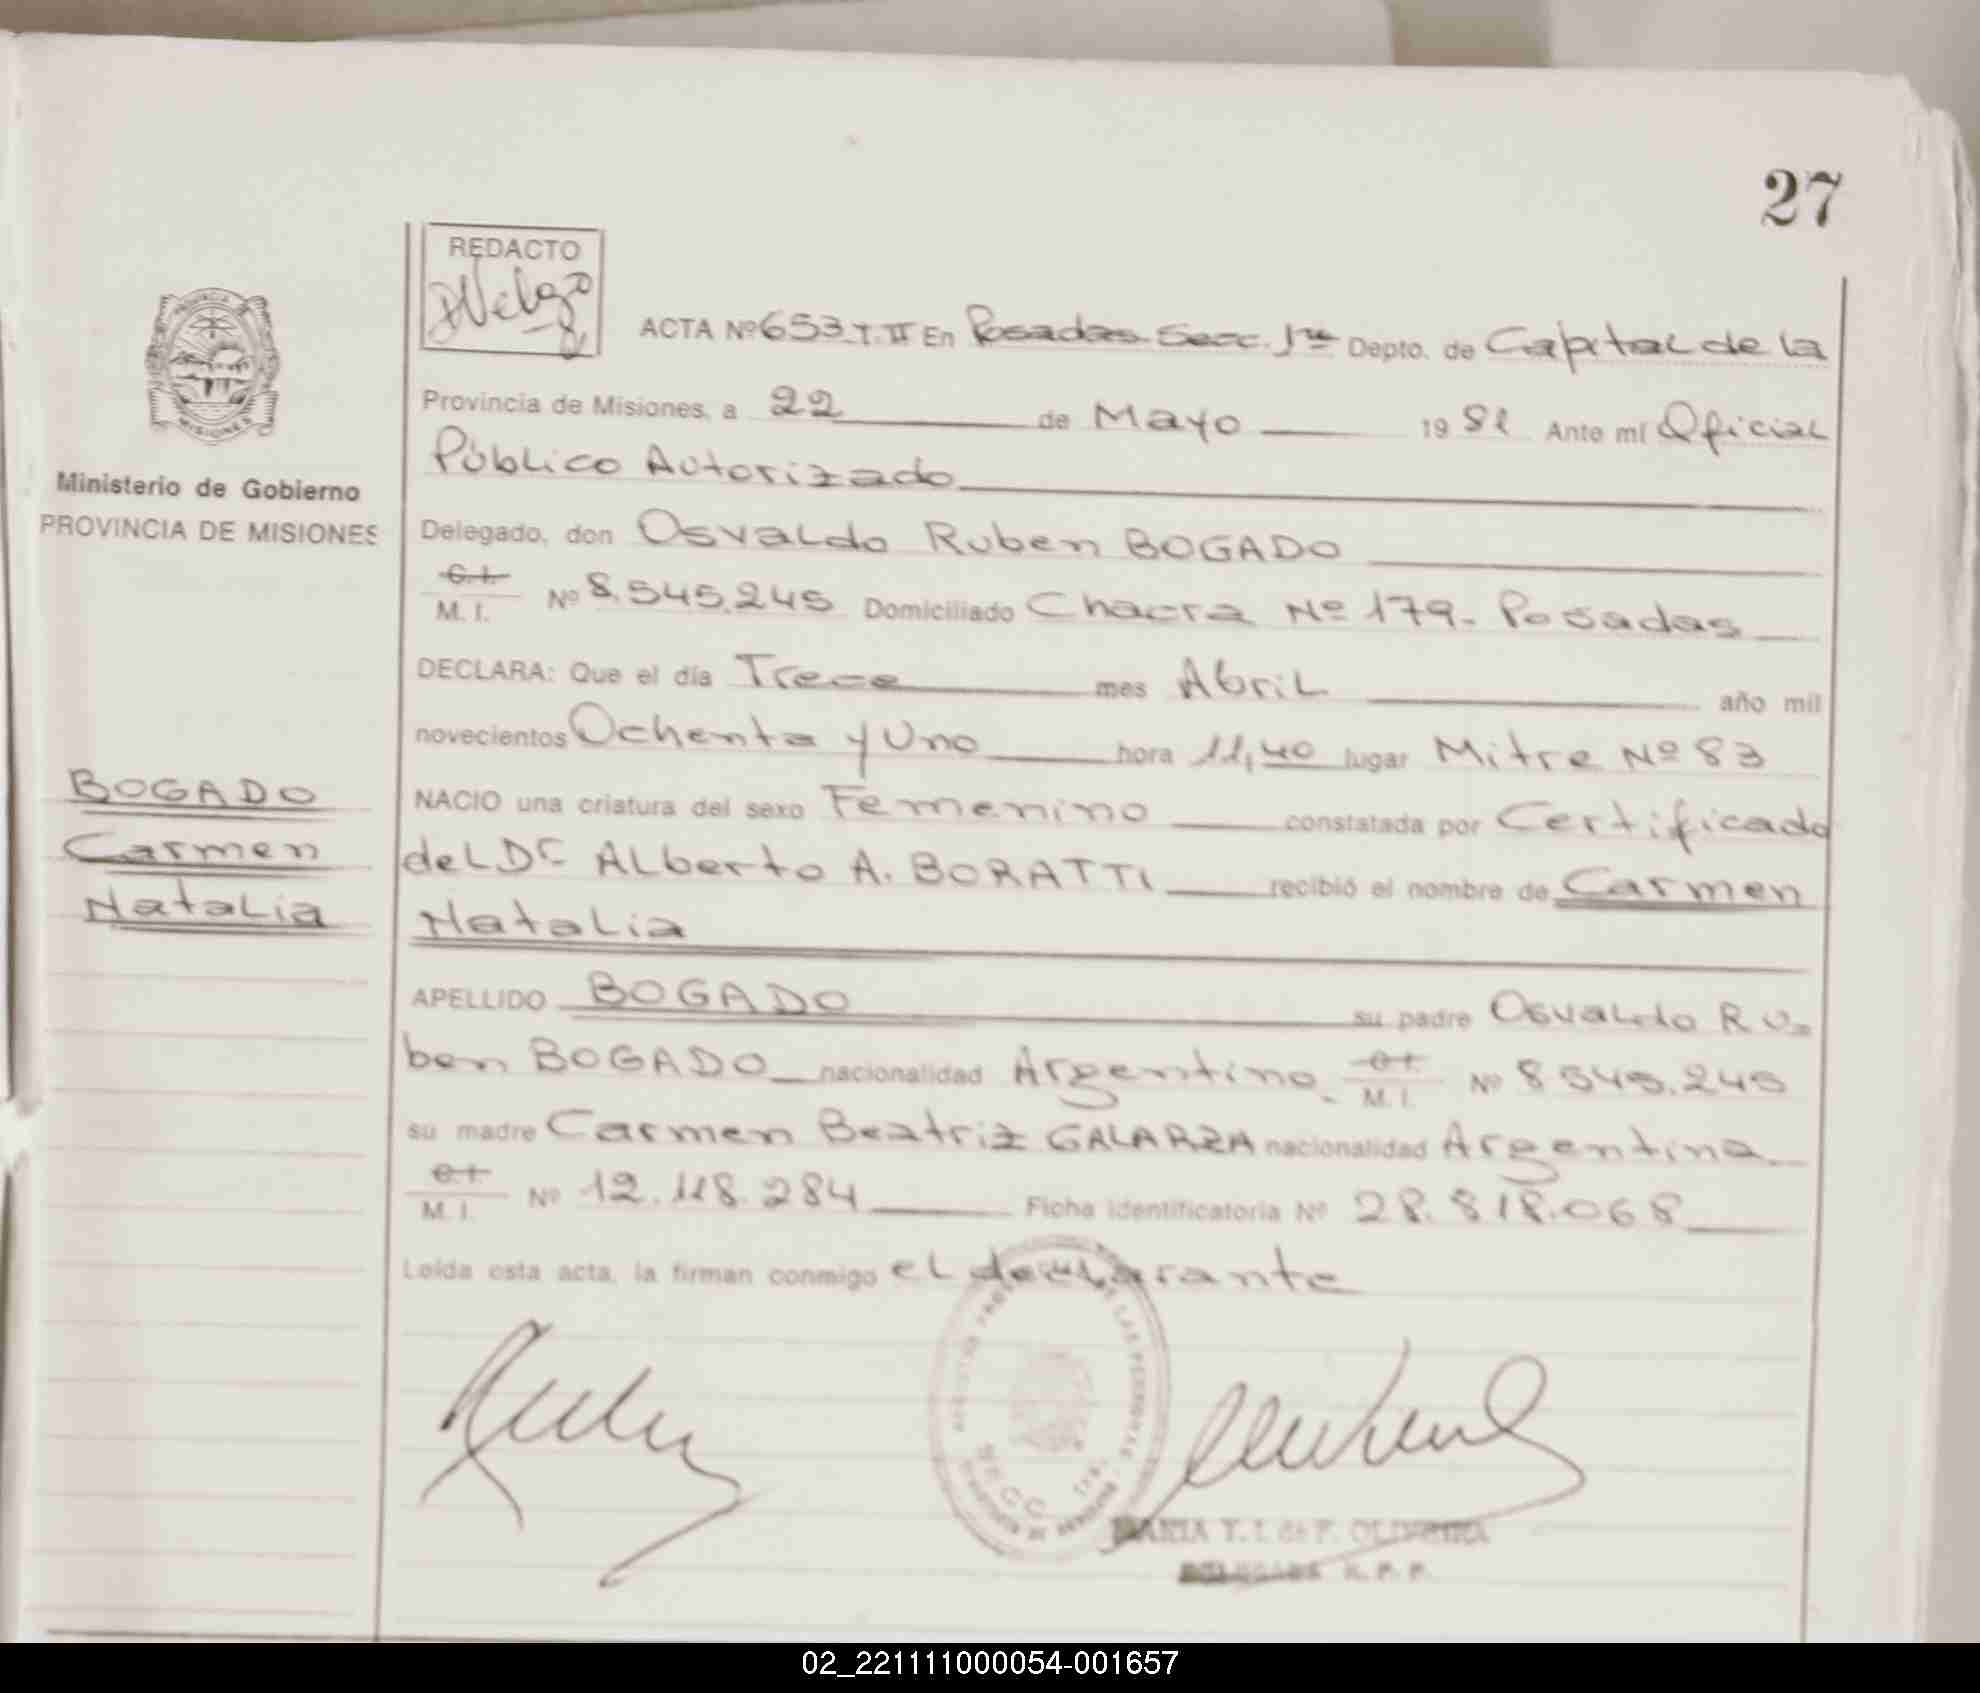 27
REDACTO
ACTA Nº 653.T.II En Posadas Secc. 1ra Depto. de Capital de la
Provincia de Misiones, a 22 de Mayo 1981 Ante mí Oficial
Público Autorizado
Delegado, don Osvaldo Ruben BOGADO
C.I.
M. I. Nº 8.545.245 Domiciliado Chacra Nº 179- Posadas
DECLARA: Que el día Trece mes Abril año mil
novecientos Ochenta y Uno hora 11,40 lugar Mitre Nº 83
NACIO una criatura del sexo Femenino constatada por Certificado
del Dr ALberto A. BORATTI recibió el nombre de Carmen
Natalia
APELLIDO BOGADO su padre Osvaldo Ru=
ben BOGADO nacionalidad Argentino C.I.
M. I. Nº 8 545.245
su madre Carmen Beatriz GALARZA nacionalidad Argentina
C.I.
M. I. Nº 12.118.284 Ficha identificatoria Nº 28.818.068
Leída esta acta, la firman conmigo el declarante
PROVINCIA DE
MISIONES
Ministerio de Gobierno
PROVINCIA DE MISIONES
BOGADO
Carmen
Natalia
DE LAS PERSONAS
SECC. 1ra.
MARIA T. I. de F. OLIVEIRA
DELEGADA R. P. P.
02_221111000054-001657